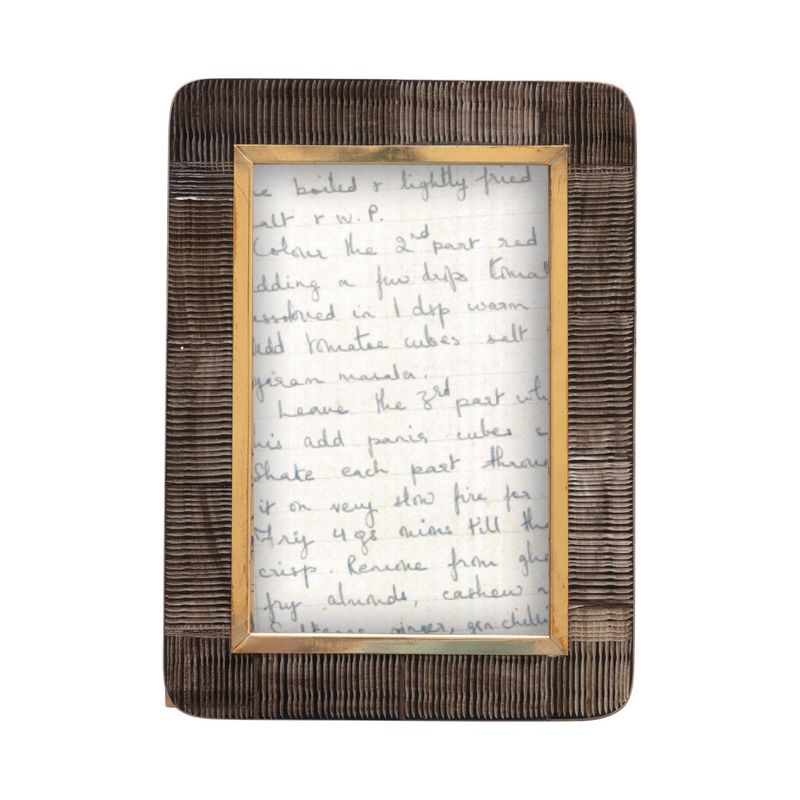 e boiled & lightly fried
alt & W.P.
Colour the 2nd part red
dding a few drops tomat
issolved in 1 dsp warm
add tomatoe cubes salt
garam masala.
Leave the 3rd part wh
his add panir cubes
Shake each part throug
it on very slow fire for
Fry 4 gs onions till th
crisp. Remove from ghe
fry almonds, cashew n
Sultanas, ginger, grn chilli